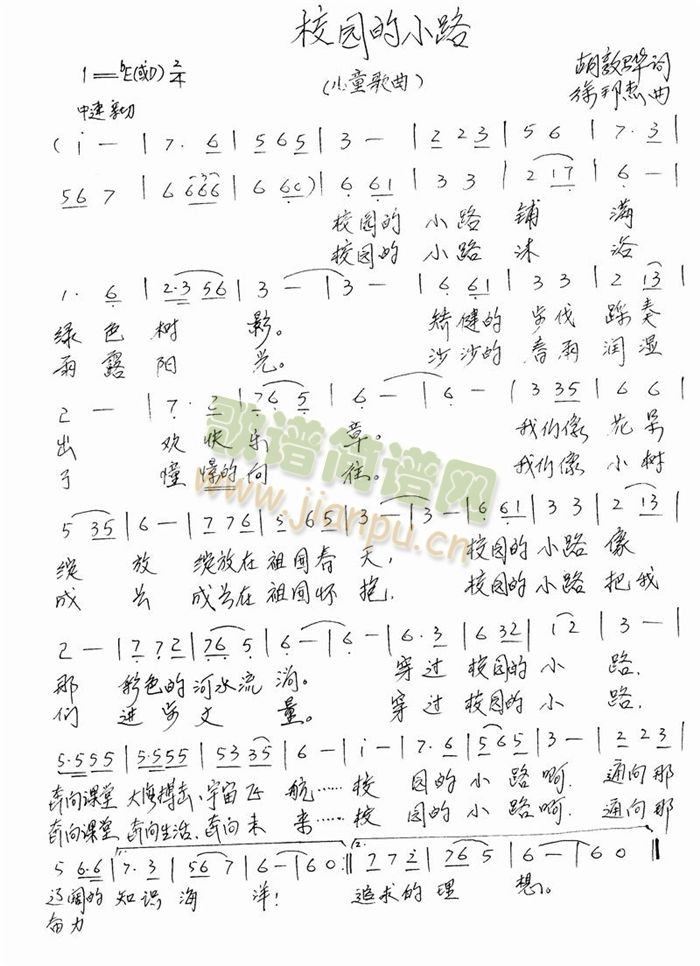 校园的小路
1=♭E(或D) 2/4
(儿童歌曲)
胡敦骅词
徐邦杰曲
中速 亲切
(i — | 7· 6 | 5 6 5 | 3 — | 2 2 3 | 5 6 | 7· 3 |
5 6 7 | 6 6 6 6 | 6 6 0) | 6 6 1 | 3 3 | 2 1 7 | 6 — |
校园的 小路 铺 满
校园的 小路 沐 浴
1· 6 | 2·3 5 6 | 3 — | 3 — | 6 6 1 | 3 3 | 2 1 3 |
绿色树 影。 矫健的 步伐 踩奏
雨露阳 光。 沙沙的 春雨 润湿
2 — | 7· 2 | 7 6 5 | 6 — | 6 — | 3 3 5 | 6 6 |
出 欢快乐 章。 我们像 花朵
了 憧憬的向 往。 我们像 小树
5 3 5 | 6 — | 7 7 6 | 5 6 5 | 3 — | 3 — | 6 6 1 | 3 3 | 2 1 3 |
绽 放 绽放在祖国春 天, 校园的小路 像
成 长 成长在祖国怀 抱, 校园的小路 把我
2 — | 7 7 2 | 7 6 5 | 6 — | 6 — | 6· 3 | 6 3 2 | i 2 | 3 — |
那 彩色的河水流 淌。 穿过 校园的 小 路,
们 进步丈 量。 穿过 校园的 小 路,
5·5 5 5 | 5·5 5 5 | 5 3 3 5 | 6 — | i — | 7· 6 | 5 6 5 | 3 — | 2 2 3 |
奔向课堂 大海搏击、宇宙飞 航……校 园的 小路啊, 通向那
奔向课堂、奔向生活、奔向未 来……校 园的 小路啊, 通向那
5 6·6 | 1. 7· 3 | 5 6 7 | 6 — | 6 0 :|| 2. 7 7 2 | 7 6 5 | 6 — | 6 0 ||
辽阔的 知识海 洋! 追求的理 想。
奋力
歌谱简谱网
www.jianpu.cn